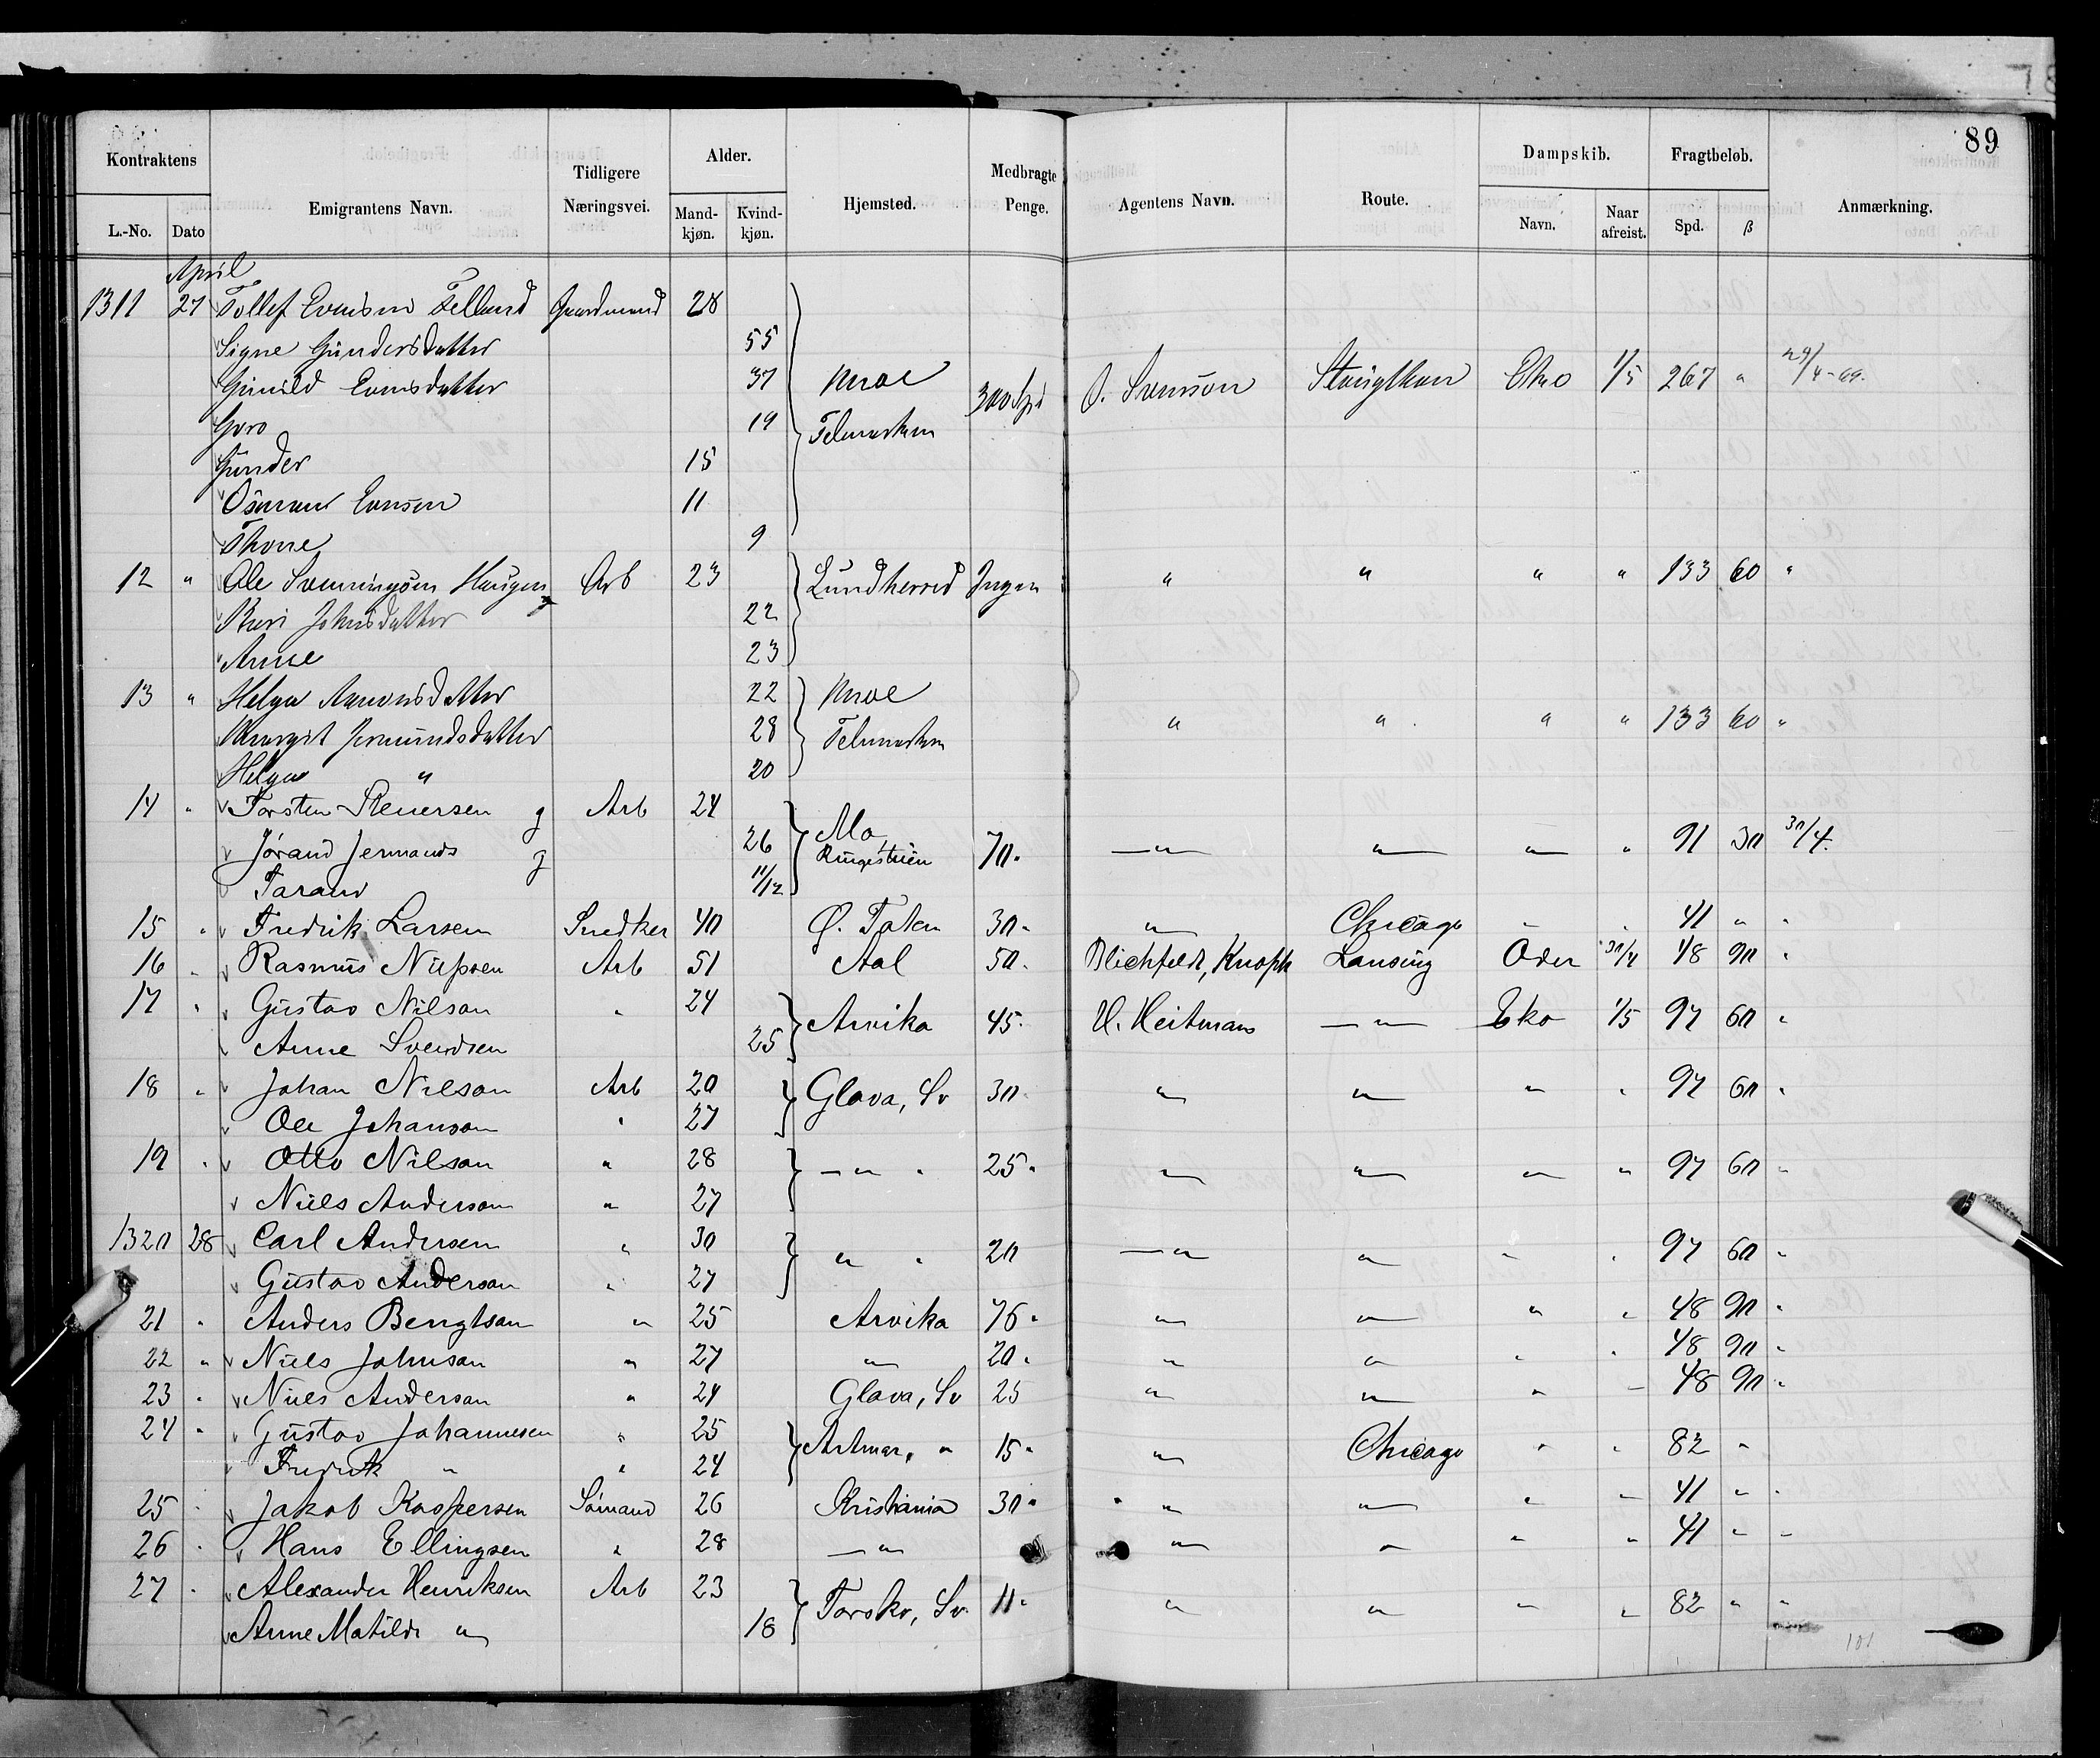 89
Kontraktens Emigrantens Navn. Tidligere Næringsvei. Alder. Hjemsted. Medbragte Penge. Agentens Navn. Route. Dampskib. Fragtbeløb. Anmærkning.
L.-No. Dato Mand-kjøn. Kvind-kjøn. Navn. Naar afreist. Spd. ß
April
1311 27 Tollef Evensen Felland Gaardmand 28
Signe Gundersdatter 55
Gunild Evensdatter 37 Moe 300 Spd O. Svensson Stoughton Eko 1/5 267 " 29/4-69.
Goro 19 Telemarken
Gunder 15
Osmund Evensen 11
Thone 9
12 " Ole Svenningsen Haugen Arb 23 Lundherred Ingen " " " " 133 60 "
Johnsdatter 22
Anne 23
13 " Helga Aanonsdatter 22 Moe
Margit Jermundsdatter 28 Telemarken " " " " 133 60 "
Helga " 20
14 " Torsten Steuersen g Arb 24
Jørand Jermands g 26 Mo, 70. " " " " 91 30 30/4.
Taran 11/12
15 " Fredrik Larsen Snedker 40 Ø. Toten 30. " Chicago " " 41 " "
16 " Rasmus Nilssen Arb 51 Aal 50. Blichfeldt, Knoph Lansing Oder 30/4 48 90 "
17 " Gustav Nilson " 24 Arvika 45. H. Heitmann " Eko 1/5 97 60 "
Anne Svendsen 25
18 " Johan Nilson Arb 20 Glava, Sv 30. " " " " 97 60 "
Ole Johanson " 27
19 " Otto Nilson " 28 " " 25. " " " " 97 60 "
Niels Anderson " 27
1320 28 Carl Andersen " 30 " " 20 " " " " 97 60 "
Gustav Anderson " 27
21 " Anders Bengtson " 25 Arvika 76. " " " " 48 90 "
22 " Niels Johnson " 27 " 20. " " " " 48 90 "
23 " Niels Anderson " 24 Glava, Sv 25 " " " " 48 90 "
24 " Gustav Johannesen " 25 " 15. " Chicago " " 82 "
Fredrik " " 24
25 " Jakob Kaspersen Sømand 26 Kristiania 30. " " " " 41 " "
26 " Hans Ellingsen " 28 " " " " " 41 " "
27 " Alexander Henriksen Arb 23 Torskv, Sv. 11. " " " " 82 " "
Anne Matilde " 18
101